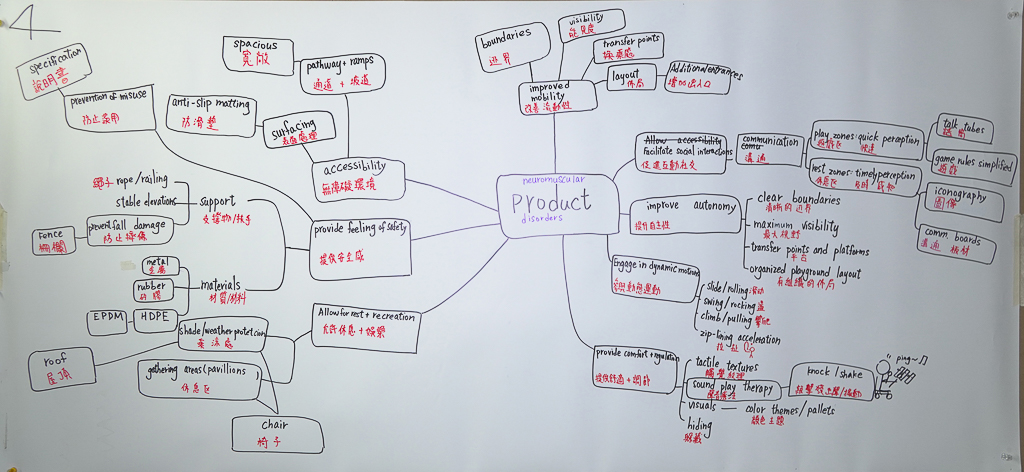 4
specification
說明書
prevention of misuse
防止亂用
spacious
寬敞
pathway + ramps
通道 + 坡道
anti-slip matting
防滑墊
surfacing
accessibility
無障礙環境
繩子 rope/railing
stable elevations
support
支撐物/扶手
prevent fall damage
防止掉傷
Fence
柵欄
metal
金屬
rubber
矽膠
EPDM
HDPE
materials
材質/材料
provide feeling of safety
提供安全感
Allow for rest + recreation
允許休息 + 娛樂
shade/weather protetcion
乘涼處
roof
屋頂
gathering areas (pavillions)
休息區
chair
椅子
neuromuscular
Product
disorders
boundaries
邊界
visibility
能見度
transfer points
layout
佈局
Additional entrances
增加出入口
improved
mobility
改善流動性
Allow accessibility
Facilitate social interactions
促進互動社交
communication
溝通
play zones: quick perception
遊戲區 快速
rest zones: timely perception
休息區
talk tubes
game rules simplified
遊戲
iconography
圖像
comm. boards
溝通 板材
improve autonomy
提升自主性
clear boundaries
清晰的邊界
maximum visibility
最大視野
transfer points and platforms
平台
organized playground layout
有組織的佈局
Engage in dynamic motions
參與動態運動
slide/rolling 滾动
swing/rocking 盪
climb/pulling 攀爬
zip-lining acceleration
provide comfort + regulation
提供舒適 + 調節
tactile textures
觸覺紋理
sound play therapy
visuals — color themes/pallets
顏色主題
hiding
躲藏
knock / shake
ping~♫